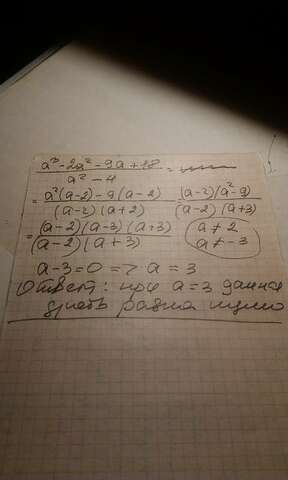 a³-2a²-9a+18 / a²-4 =
= a²(a-2)-9(a-2) / (a-2)(a+2) = (a-2)(a²-9) / (a-2)(a+3)
= (a-2)(a-3)(a+3) / (a-2)(a+3) a≠2 a≠-3
a-3=0 => a=3
Ответ: при a=3 данная
дробь равна нулю